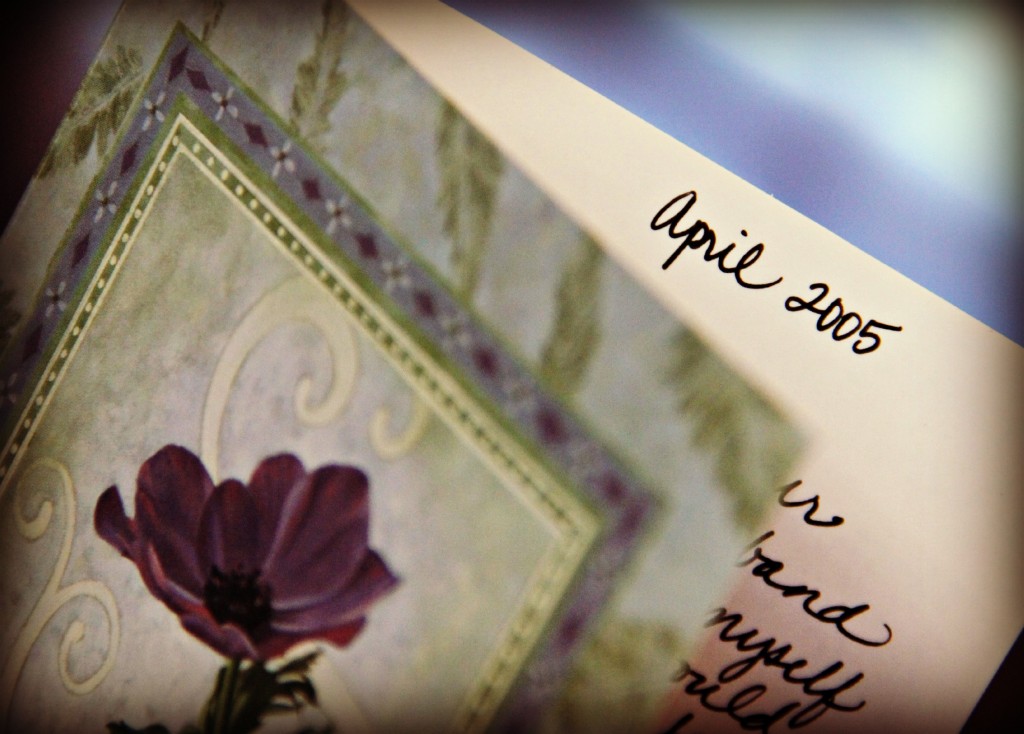 April 2005
ur
band
myself
ould